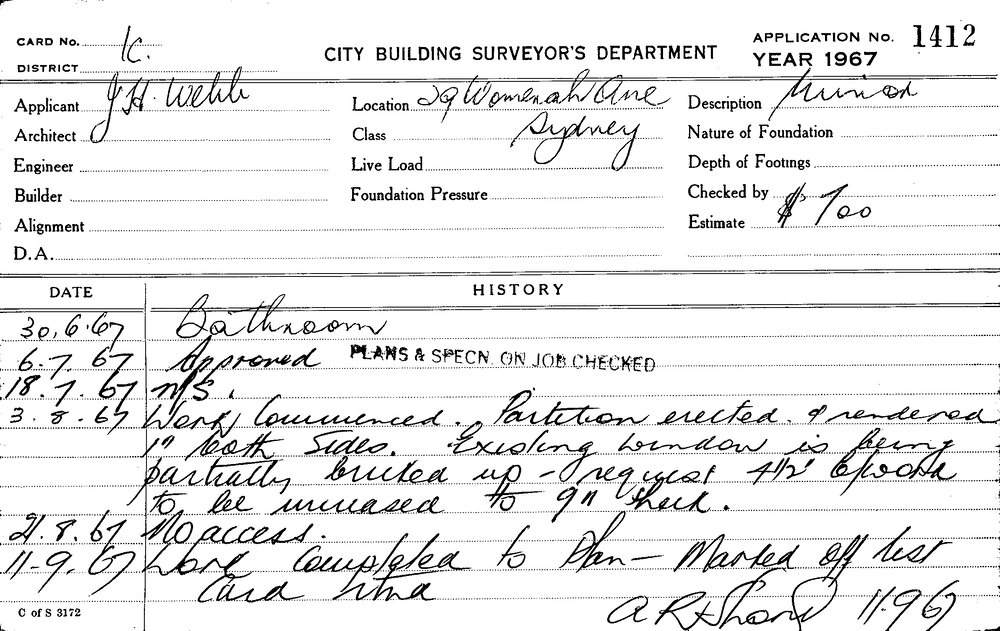 CARD No. 1c.
DISTRICT
CITY BUILDING SURVEYOR'S DEPARTMENT
APPLICATION No. 1412
YEAR 1967
Applicant J H. Webb
Location 29 Womerah Ave
Description Minor
Architect
Class Sydney
Nature of Foundation
Engineer
Live Load
Depth of Footings
Builder
Foundation Pressure
Checked by
Alignment
Estimate $ 700
D.A.
DATE HISTORY
30.6.67 Bathroom
6.7.67 Approved PLANS & SPECN. ON JOB CHECKED
18.7.67 N/S.
3.8.67 Work Commenced. Partition erected & rendered
1" both sides. Existing window is being
partially bricked up - request 4½"
to be increased to 9"
21.8.67 No access.
11-9.67 Work Completed to Plan - Marked off list
Card
11.9.67
C of S 3172